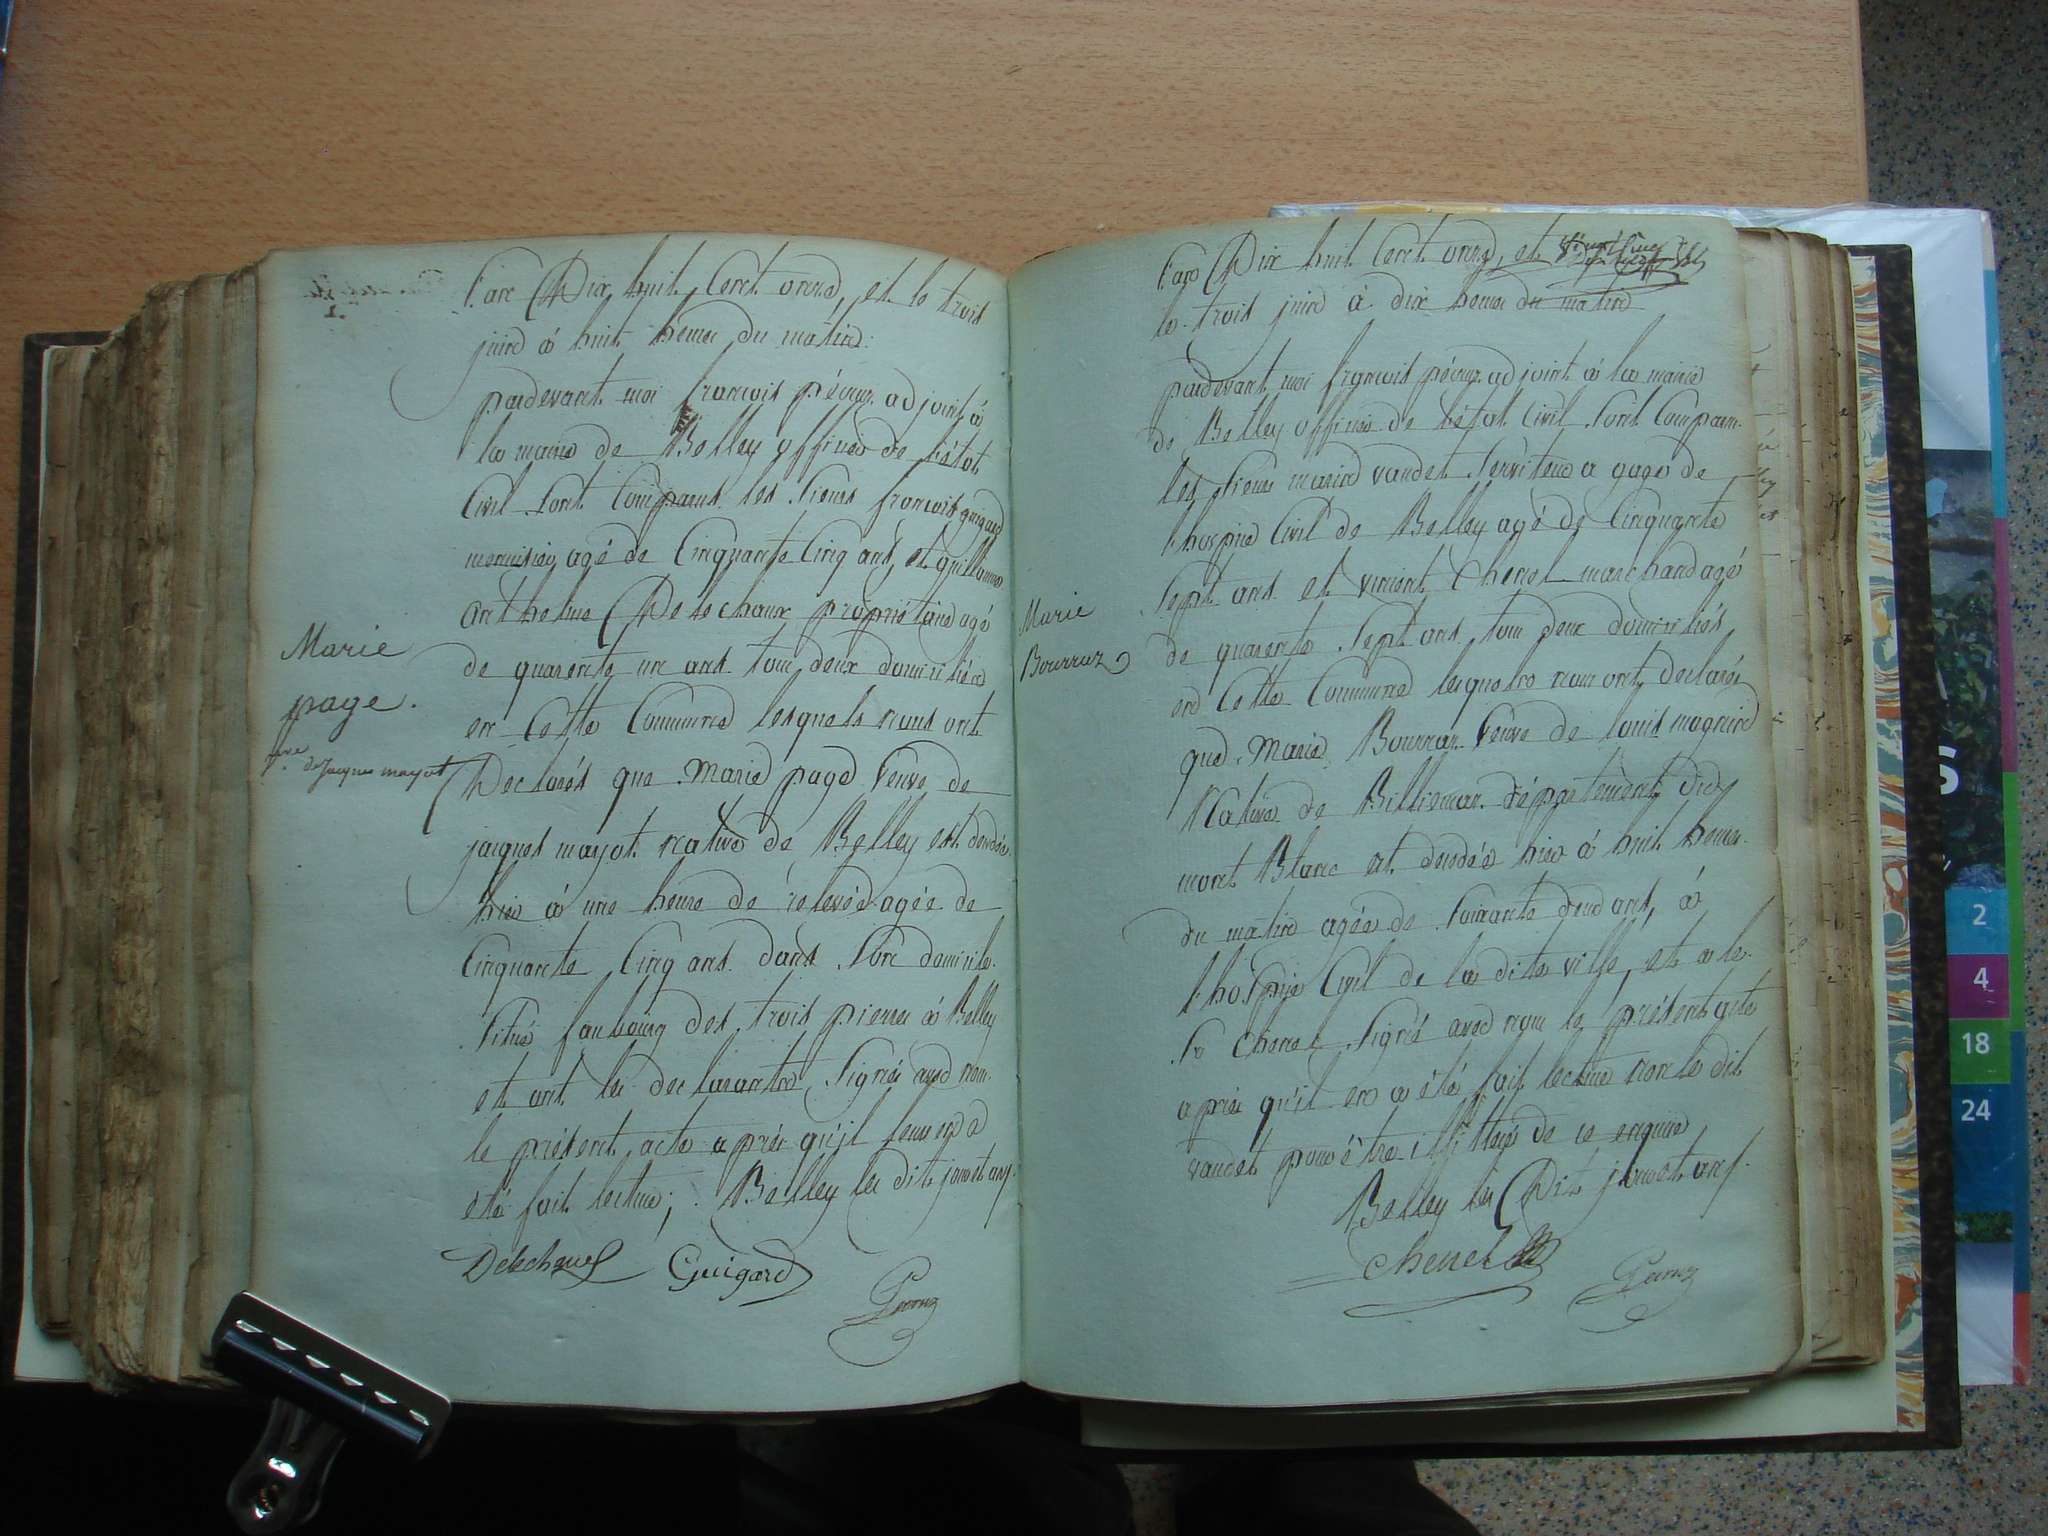 Marie
page.
v.ve de jacques mayot
L'an Dix huit Cent onze, et le trois
juin à huit heures du matin
pardevant moi françois pécruz adjoint à
la mairie de Belley officier de l'état
Civil sont Comparus les sieurs françois guigard
menuisier agé de Cinquante Cinq ans, et guillaume
anthelme De lechaux propriétaire agé
de quarente un ans tous deux domiciliés
en Cette Commune lesquels nous ont
Declarés que Marie page veuve de
jacques mayot native de Belley est décédée
hier à une heure de relevée agée de
Cinquante Cinq ans dans son domicile
situé faubourg des trois pierres à Belley
et ont les declarants signés avec nous
le présent acte après qu'il leur en a
été fait lecture; Belley les dit jour et an
Delechaux Guigard
Marie
Bourruz
L'an Dix huit Cent onze, et
le trois juin à dix heures du matin
pardevant moi françois pécruz adjoint à la mairie
de Belley officier de l'état Civil sont Comparus
les sieurs marin vaudet serviteur a gage de
l'hospice Civil de Belley agé de Cinquante
sept ans et vincent Chenel marchand agé
de quarente sept ans tous deux domiciliés
en Cette Commune lesquels nous ont declarés
que Marie Bourruz veuve de louis magnin
Native de Billiemaz département du
mont Blanc est décédée hier à huit heures
du matin agée de soixante deux ans, à
l'hospice Civil de la dite ville, et a le
sr Chenel signé avec nous le présent acte
après qu'il en a été fait lecture non le dit
vaudet pour être illitteré de ce enquis
Belley les Dit jour et an
chenel